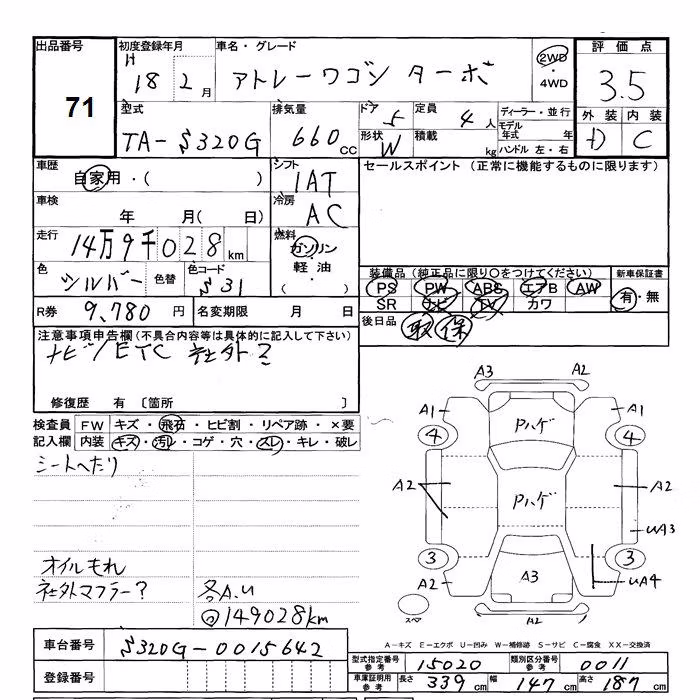 出品番号 初度登録年月 車名・グレード 評価点
71
H 18 2月 アトレーワゴン ターボ 2WD・4WD 3.5
型式 排気量 ドア 定員 ディーラー・並行 外装 内装
TA-S320G 660cc 5 4人 モデル年式 年 C
形状 W 積載 kg ハンドル 左・右
車歴 シフト セールスポイント (正常に機能するものに限ります)
自家用・( ) IAT
車検 冷房
年 月( 日) AC
走行 燃料
14万9千028km ガソリン
軽油・( )
色 色替 色コード 装備品 (純正品に限り○をつけてください) 新車保証書
シルバー S31 PS PW ABS エアB AW 有・無
SR ナビ TV カワ
R券 9,780円 名変期限 月 日 後日品 取 保
注意事項申告欄 (不具合内容等は具体的に記入して下さい)
ナビ/ETC 社外?
修復歴 有 [箇所 ]
検査員 FW キズ・飛石・ヒビ割・リペア跡・×要
記入欄 内装 キズ・汚レ・コゲ・穴・スレ・キレ・破レ
シートへたり
オイルもれ
社外マフラー? 各A.U
149028km
A3 A2
A1 A1
4 Pハゲ 4
A2 Pハゲ A2
UA3
3 3
A2 A3 UA4
スペア A2
A-キズ E-エクボ U-凹み W-補修跡 S-サビ C-腐食 XX-交換済
車台番号 S320G-0015642
型式指定番号 参考 15020 類別区分番号 参考 0011
登録番号
車庫証明用 参考 長さ 339cm 幅 147cm 高さ 187cm